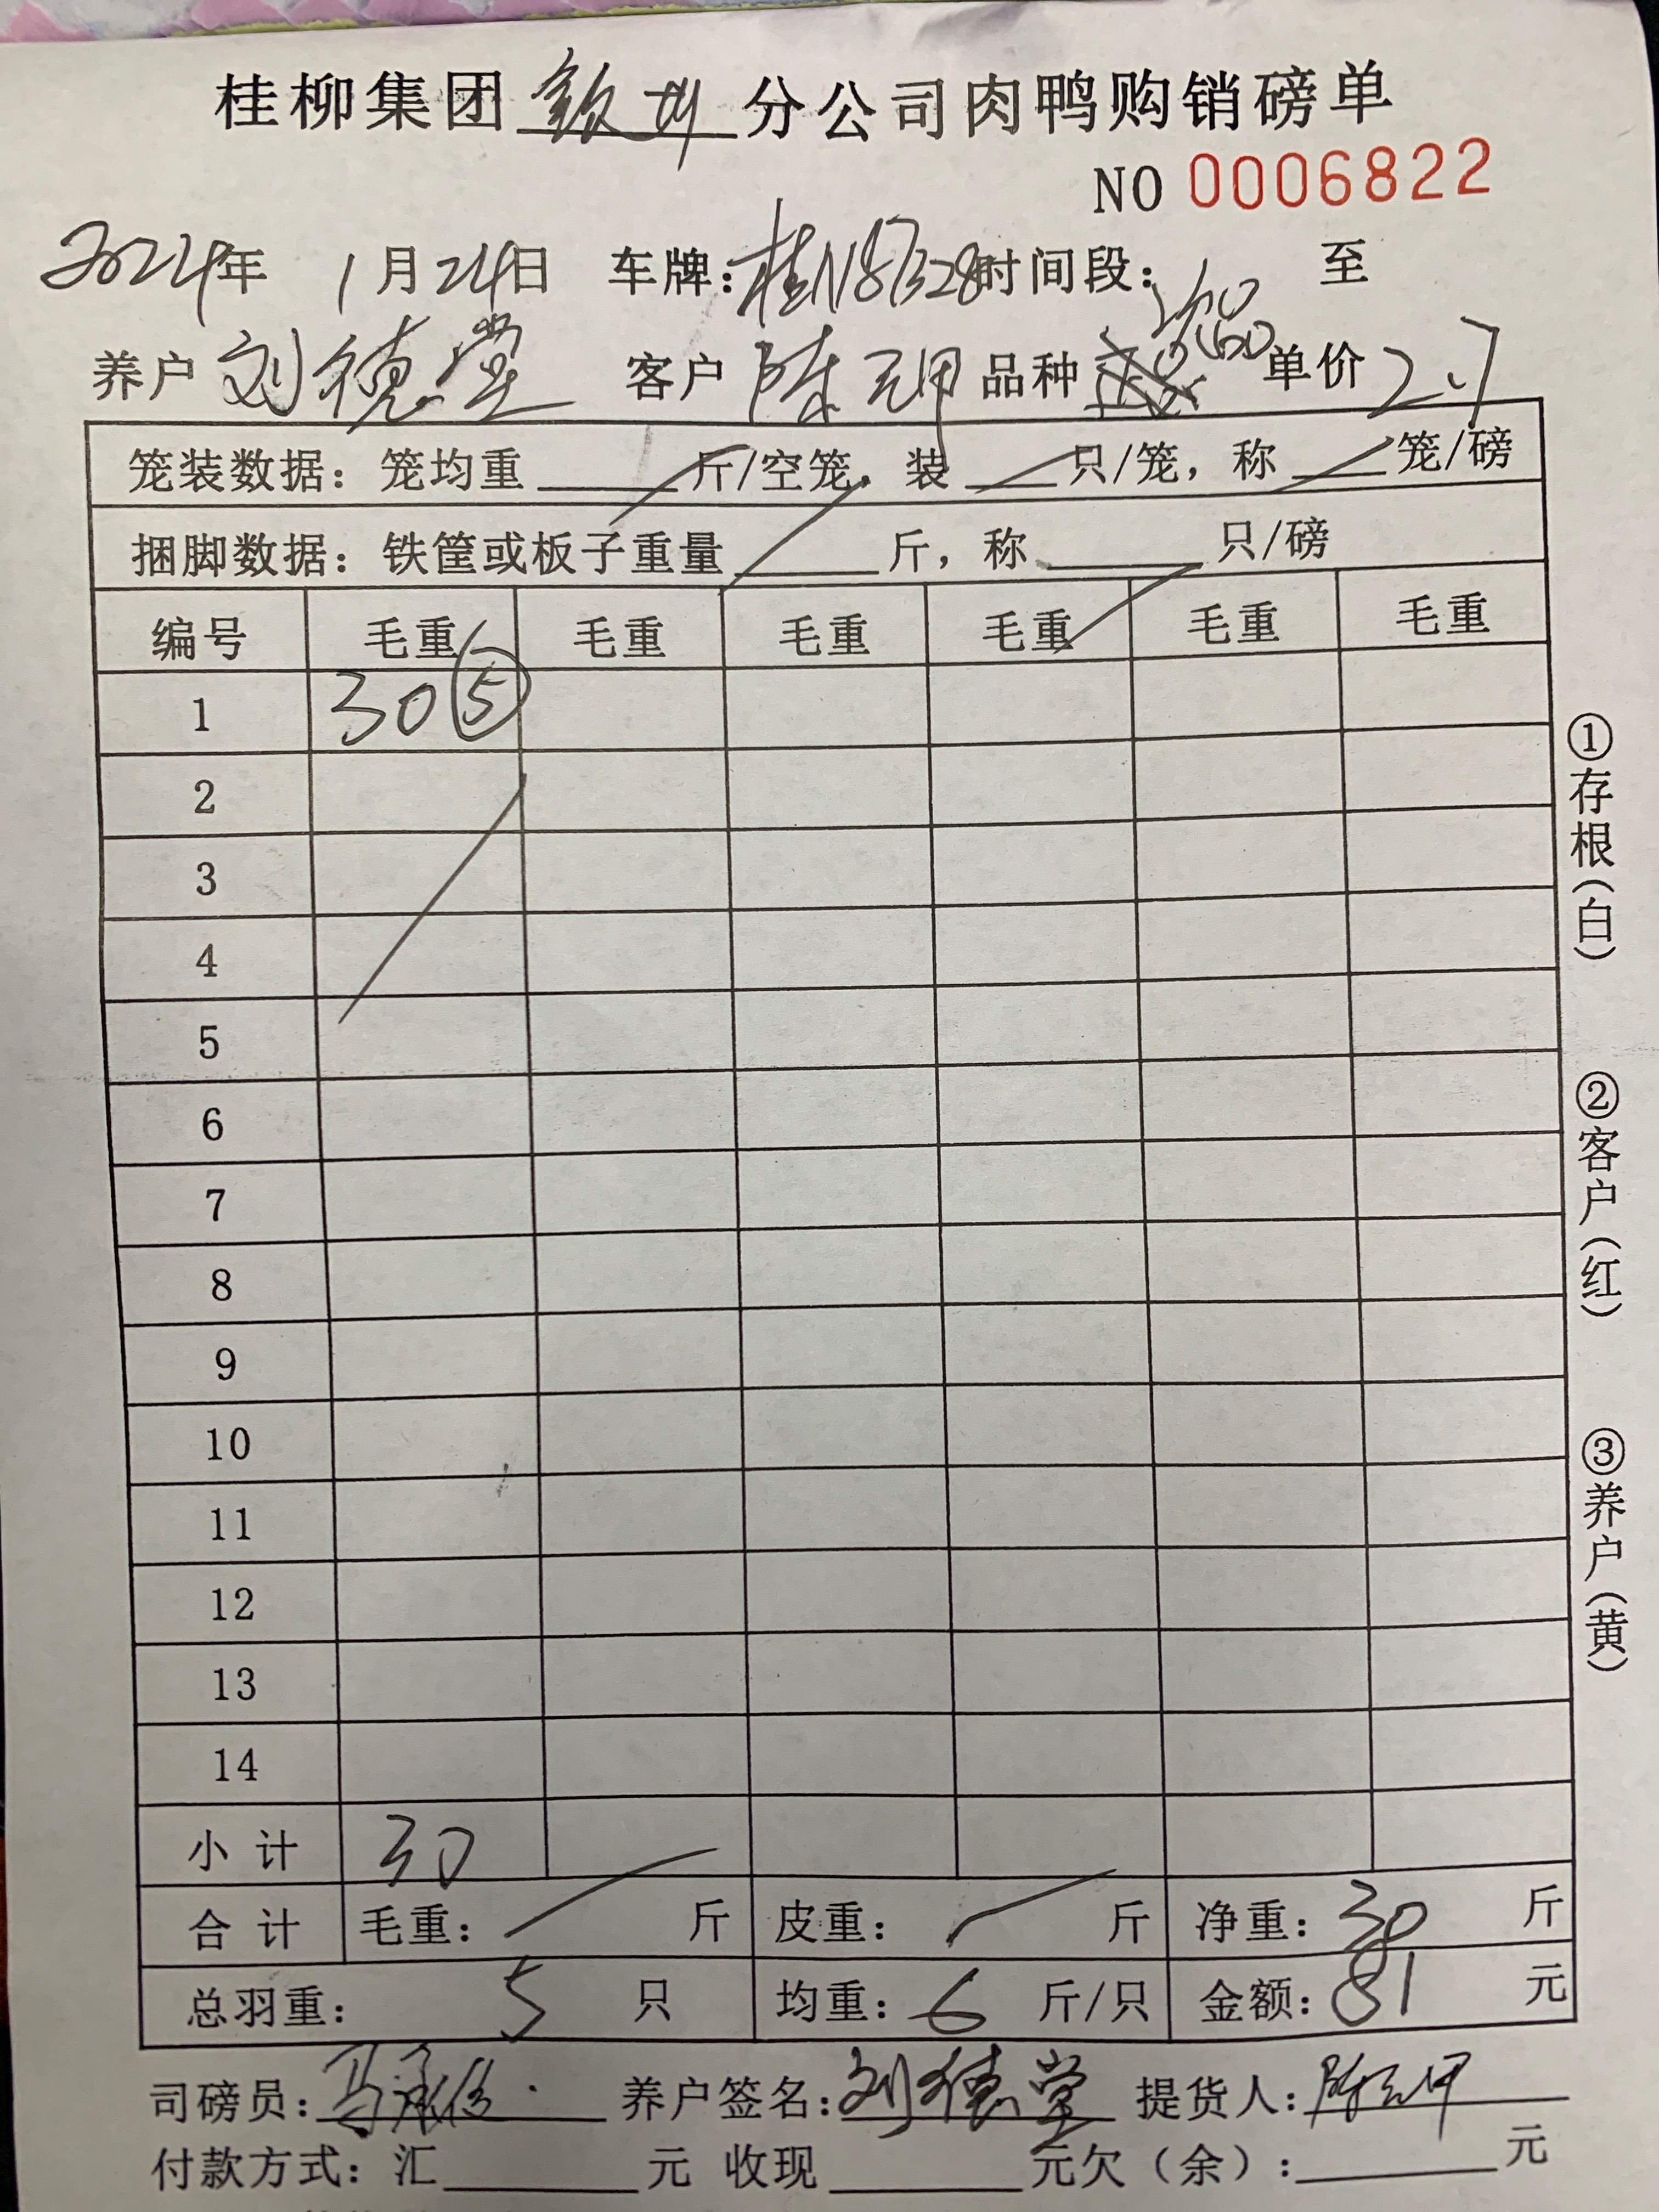 桂柳集团钦州分公司肉鸭购销磅单
NO 0006822
2024年 1月24日 车牌:桂N87328时间段: 至
养户 刘德堂 客户 陈 品种 单价 2.7
笼装数据: 笼均重 斤/空笼, 装 只/笼, 称 笼/磅
捆脚数据: 铁筐或板子重量 斤, 称 只/磅
编号 毛重 毛重 毛重 毛重 毛重 毛重
1 30 ⑤
2
3
4
5
6
7
8
9
10
11
12
13
14
小 计 30
合 计 毛重: 斤 皮重: 斤 净重: 30 斤
总羽重: 5 只 均重: 6 斤/只 金额: 81 元
司磅员: 马承 养户签名: 刘德堂 提货人: 陈
付款方式: 汇 元 收现 元欠(余): 元
①存根(白)
②客户(红)
③养户(黄)